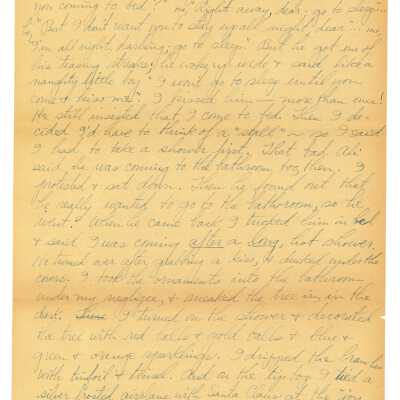 now coming to bed?" me, "Right away, dear - go to sleep"...
"But I don't want you to stay up all night, dear"... me,
"I'm all right, darling, go to sleep." But he got one of
his teasing streaks! He woke up wide & said like a
naughty little boy "I won't go to sleep until you
come & kiss me." I kissed him — more than once!
He still insisted that I come to bed. Then I de-
cided I'd have to think of a "stall" — so I said
I had to take a shower first. That bad,
said he was coming to the bathroom too, then. I
protested & sat down. Then he found out that
he really wanted to go to the bathroom, so he
went! When he came back I tucked him in bed
& said I was coming after a long, hot shower.
He turned over after grabbing a kiss, & ducked under the
covers. I took the ornaments into the bathroom
under my negligee, & sneaked the tree in, in the
dark. I turned on the shower & decorated
the tree with red balls & gold balls & blue &
green & orange sparklings. I dripped the branches
with tinfoil & tinsel. And on the tip top I tied a
silver frosted airplane with Santa Claus at the